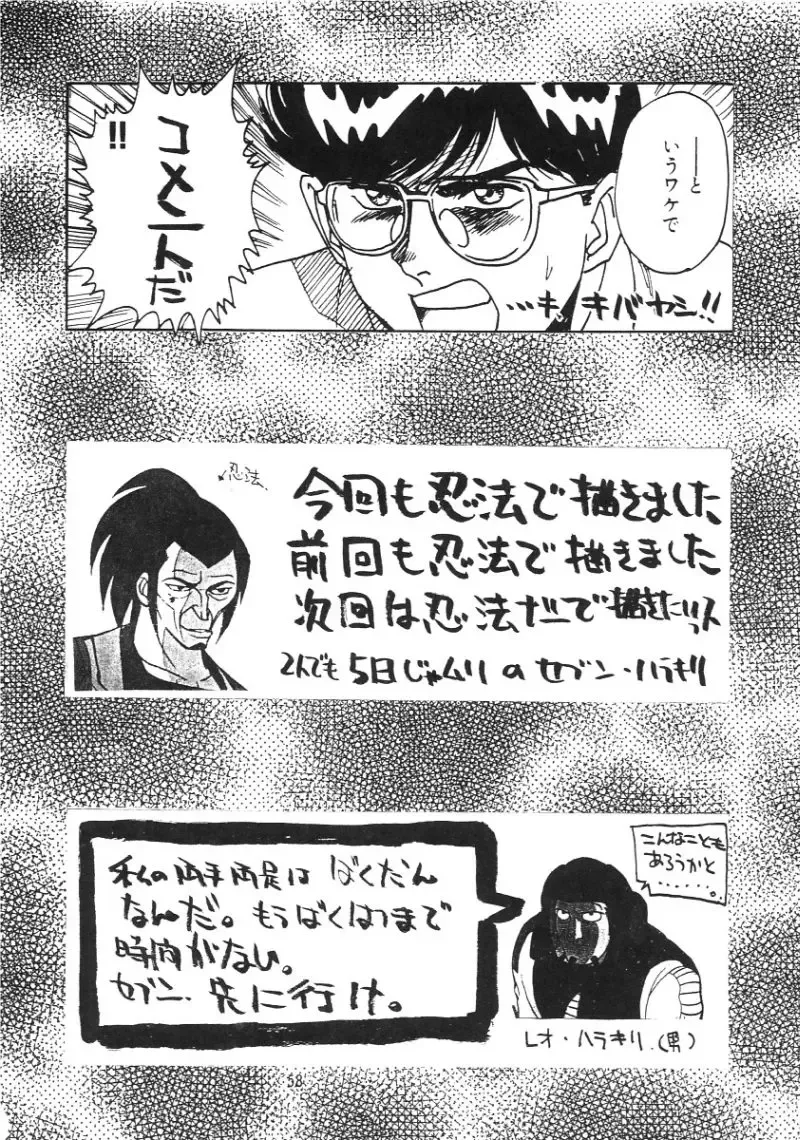 ──と
いうワケで
コメントだ
!!
…キ、キバヤシ!!
忍法
今回も忍法で描きました
前回も忍法で描きました
次回は忍法だーで描きたいっス
2人でも5日じゃムリのセブン・ハラキリ
私の両手両足はばくだん
なんだ。もうばくはつまで
時間がない。
セブン、先に行け。
こんなことも
あろうかと
……。
レオ・ハラキリ.(男)
58